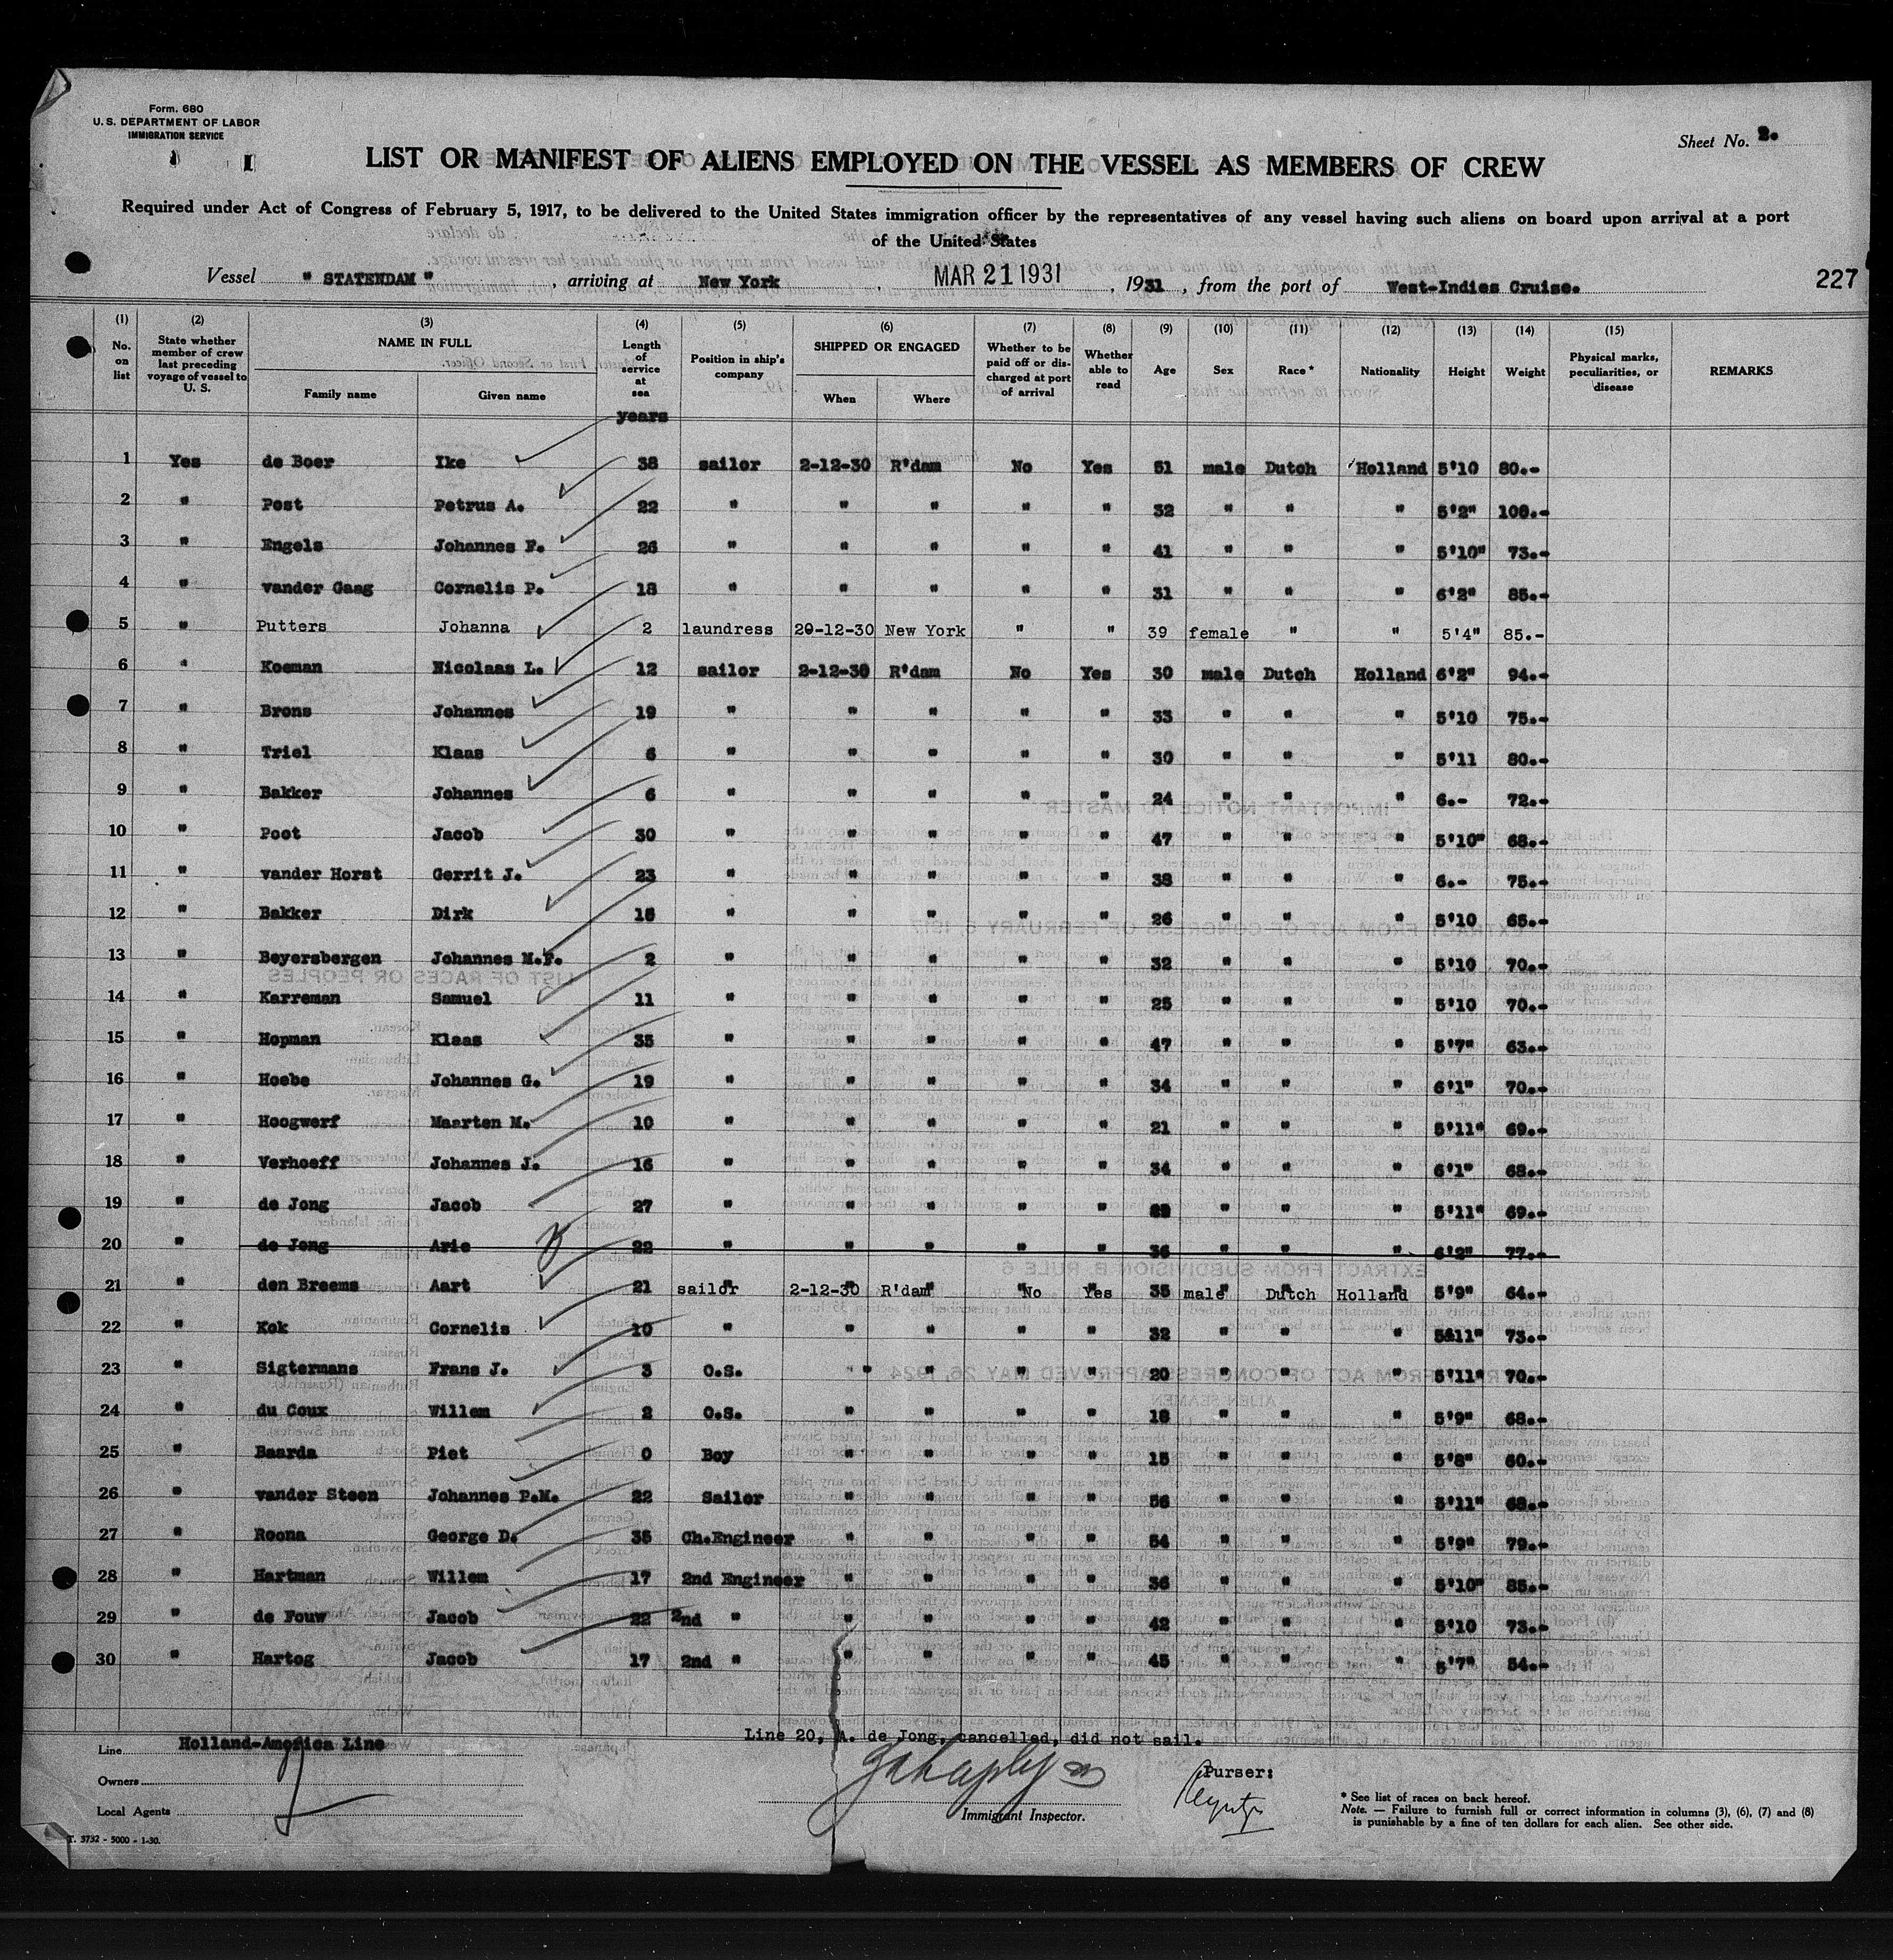 Form. 680
U. S. DEPARTMENT OF LABOR
IMMIGRATION SERVICE
Sheet No. 2.
LIST OR MANIFEST OF ALIENS EMPLOYED ON THE VESSEL AS MEMBERS OF CREW
Required under Act of Congress of February 5, 1917, to be delivered to the United States immigration officer by the representatives of any vessel having such aliens on board upon arrival at a port
of the United States
Vessel " STATENDAM " , arriving at New York , MAR 21 1931 , 1931 , from the port of West-Indies Cruise. 227
(1) (2) (3) (4) (5) (6) (7) (8) (9) (10) (11) (12) (13) (14) (15)
No. on list State whether member of crew last preceding voyage of vessel to U. S. NAME IN FULL Family name Given name Length of service at sea Position in ship's company SHIPPED OR ENGAGED When Where Whether to be paid off or discharged at port of arrival Whether able to read Age Sex Race * Nationality Height Weight Physical marks, peculiarities, or disease REMARKS
years
1 Yes de Boer Ike 38 sailor 2-12-30 R'dam No Yes 51 male Dutch Holland 5'10 80.-
2 " Post Petrus A. 22 " " " " " 32 " " " 5'2" 100.-
3 " Engels Johannes F. 26 " " " " " 41 " " " 5'10" 73.-
4 " vander Gaag Cornelis P. 18 " " " " " 31 " " " 6'2" 85.-
5 " Putters Johanna 2 laundress 20-12-30 New York " " 39 female " " 5'4" 85.-
6 " Koeman Nicolaas L. 12 sailor 2-12-30 R'dam No Yes 30 male Dutch Holland 6'2" 94.-
7 " Brons Johannes 19 " " " " " 33 " " " 5'10 75.-
8 " Triel Klaas 6 " " " " " 30 " " " 5'11 80.-
9 " Bakker Johannes 6 " " " " " 24 " " " 6.- 72.-
10 " Poot Jacob 30 " " " " " 47 " " " 5'10" 68.-
11 " vander Horst Gerrit J. 23 " " " " " 38 " " " 6.- 75.-
12 " Bakker Dirk 15 " " " " " 26 " " " 5'10 65.-
13 " Beyersbergen Johannes M.F. 2 " " " " " 32 " " " 5'10 70.-
14 " Karreman Samuel 11 " " " " " 25 " " " 5'10 70.-
15 " Hopman Klaas 35 " " " " " 47 " " " 5'7" 63.-
16 " Hoebe Johannes G. 19 " " " " " 34 " " " 6'1" 70.-
17 " Hoogwerf Maarten M. 10 " " " " " 21 " " " 5'11" 69.-
18 " Verhoeff Johannes J. 16 " " " " " 34 " " " 6'1" 68.-
19 " de Jong Jacob 27 " " " " " " " " 5'11" 69.-
20 " de Jong Arie 22 " " " " " 36 " " " 6'2" 77.-
21 " den Breems Aart 21 sailor 2-12-30 R'dam No Yes 35 male Dutch Holland 5'9" 64.-
22 " Kok Cornelis 10 " " " " " 32 " " " 5&11" 73.-
23 " Sigtermans Frans J. 3 O.S. " " " " 20 " " " 5'11" 70.-
24 " du Coux Willem 2 O.S. " " " " 18 " " " 5'9" 68.-
25 " Baarda Piet 0 Boy " " " " 15 " " " 5'8" 60.-
26 " vander Steen Johannes P.M. 22 Sailor " " " " 56 " " " 5'11" 68.-
27 " Roona George D. 35 Ch.Engineer " " " " 54 " " " 5'9" 79.-
28 " Hartman Willem 17 2nd Engineer " " " " 36 " " " 5'10" 85.-
29 " de Fouw Jacob 22 2nd " " " " " 42 " " " 5'10 73.-
30 " Hartog Jacob 17 2nd " " " " " 45 " " " 5'7" 54.-
Line 20, A. de Jong, cancelled, did not sail.
Line Holland-America Line
Owners
Local Agents
Immigrant Inspector.
Purser:
* See list of races on back hereof.
Note. — Failure to furnish full or correct information in columns (3), (6), (7) and (8)
is punishable by a fine of ten dollars for each alien. See other side.
T. 3732 - 5000 - 1-30.